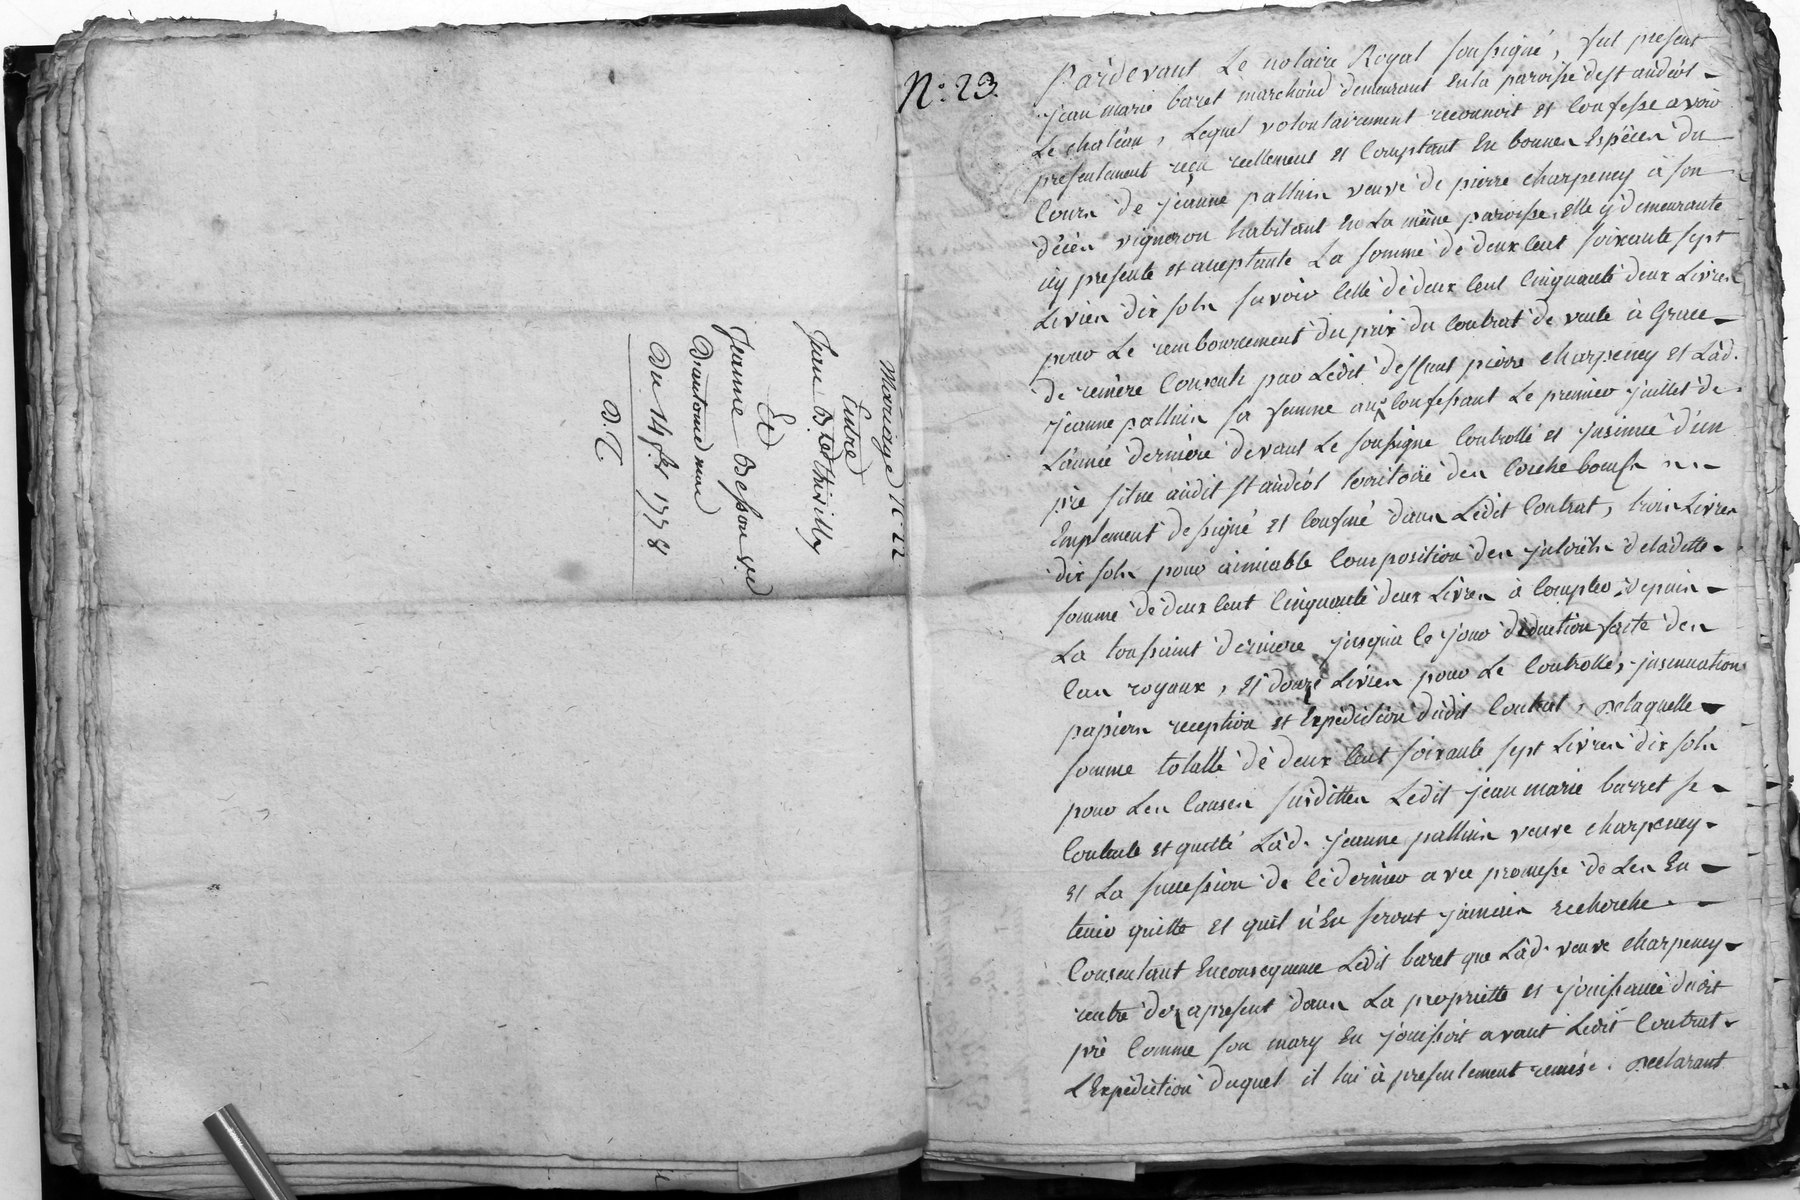 Mariage N.° 22
Entre
Jean Barthelilly
Et
Jeanne Besson v.e
Dantoine
Du 14 f.er 1778
D.C.
N.° 23.
Pardevant Le notaire Royal soussigné, fut present
jean marie baret marchand demeurant En la paroisse de st andéol
Le chateau, Lequel volontairement reconnoit et Confesse avoir
presentement reçu reellement et Comptant En bonnes Espèces du
Cours de jeanne palluis veuve de pierre charpeney à son
décès vigneron habitant En La même paroisse, Elle y demeurante
icy presente et acceptante La somme de deux Cent soixante sept
Livres dix sols savoir Celle de deux Cent Cinquante deux Livres
pour Le remboursement du prix du Contrat de vente à Grace
de reméré Consenti par Ledit deffunt pierre charpeney et Lad.
jeanne palluis sa femme au Confessant Le premier juillet de
L'année derniere devant Le soussigné Controllé et insinué d'un
pré situé audit st andéol territoire des Corche boeufs
Emplement designé et Confiné dans Ledit Contrat, trois Livres
dix sols pour aimiable Composition des jnterêts de ladette
somme de deux Cent Cinquante deux Livres à Compter depuis
La toussaint derniere jusqu'a ce jour déduction faite des
Cas royaux, et douze Livres pour Le Controlle, jnsinuation
papiers reception et Expédition dudit Contrat, De laquelle
somme totalle de deux Cent soixante sept Livres dix sols
pour Les Causes susdittes Ledit jean marie barret se
Contente et quitte Lad. jeanne palluis veuve charpeney
et La succession de Ce dernier avec promesse de Les En
tenir quitte et quil n'En seront jamais recherché.
Consentant En consequence Ledit baret que Lad. veuve charpeney
rentre des apresent dans La propriette et jouissance dudit
pré Comme son mary En jouissoit avant Ledit Contrat
L'Expédiction duquel il lui à presentement remise. Declarant